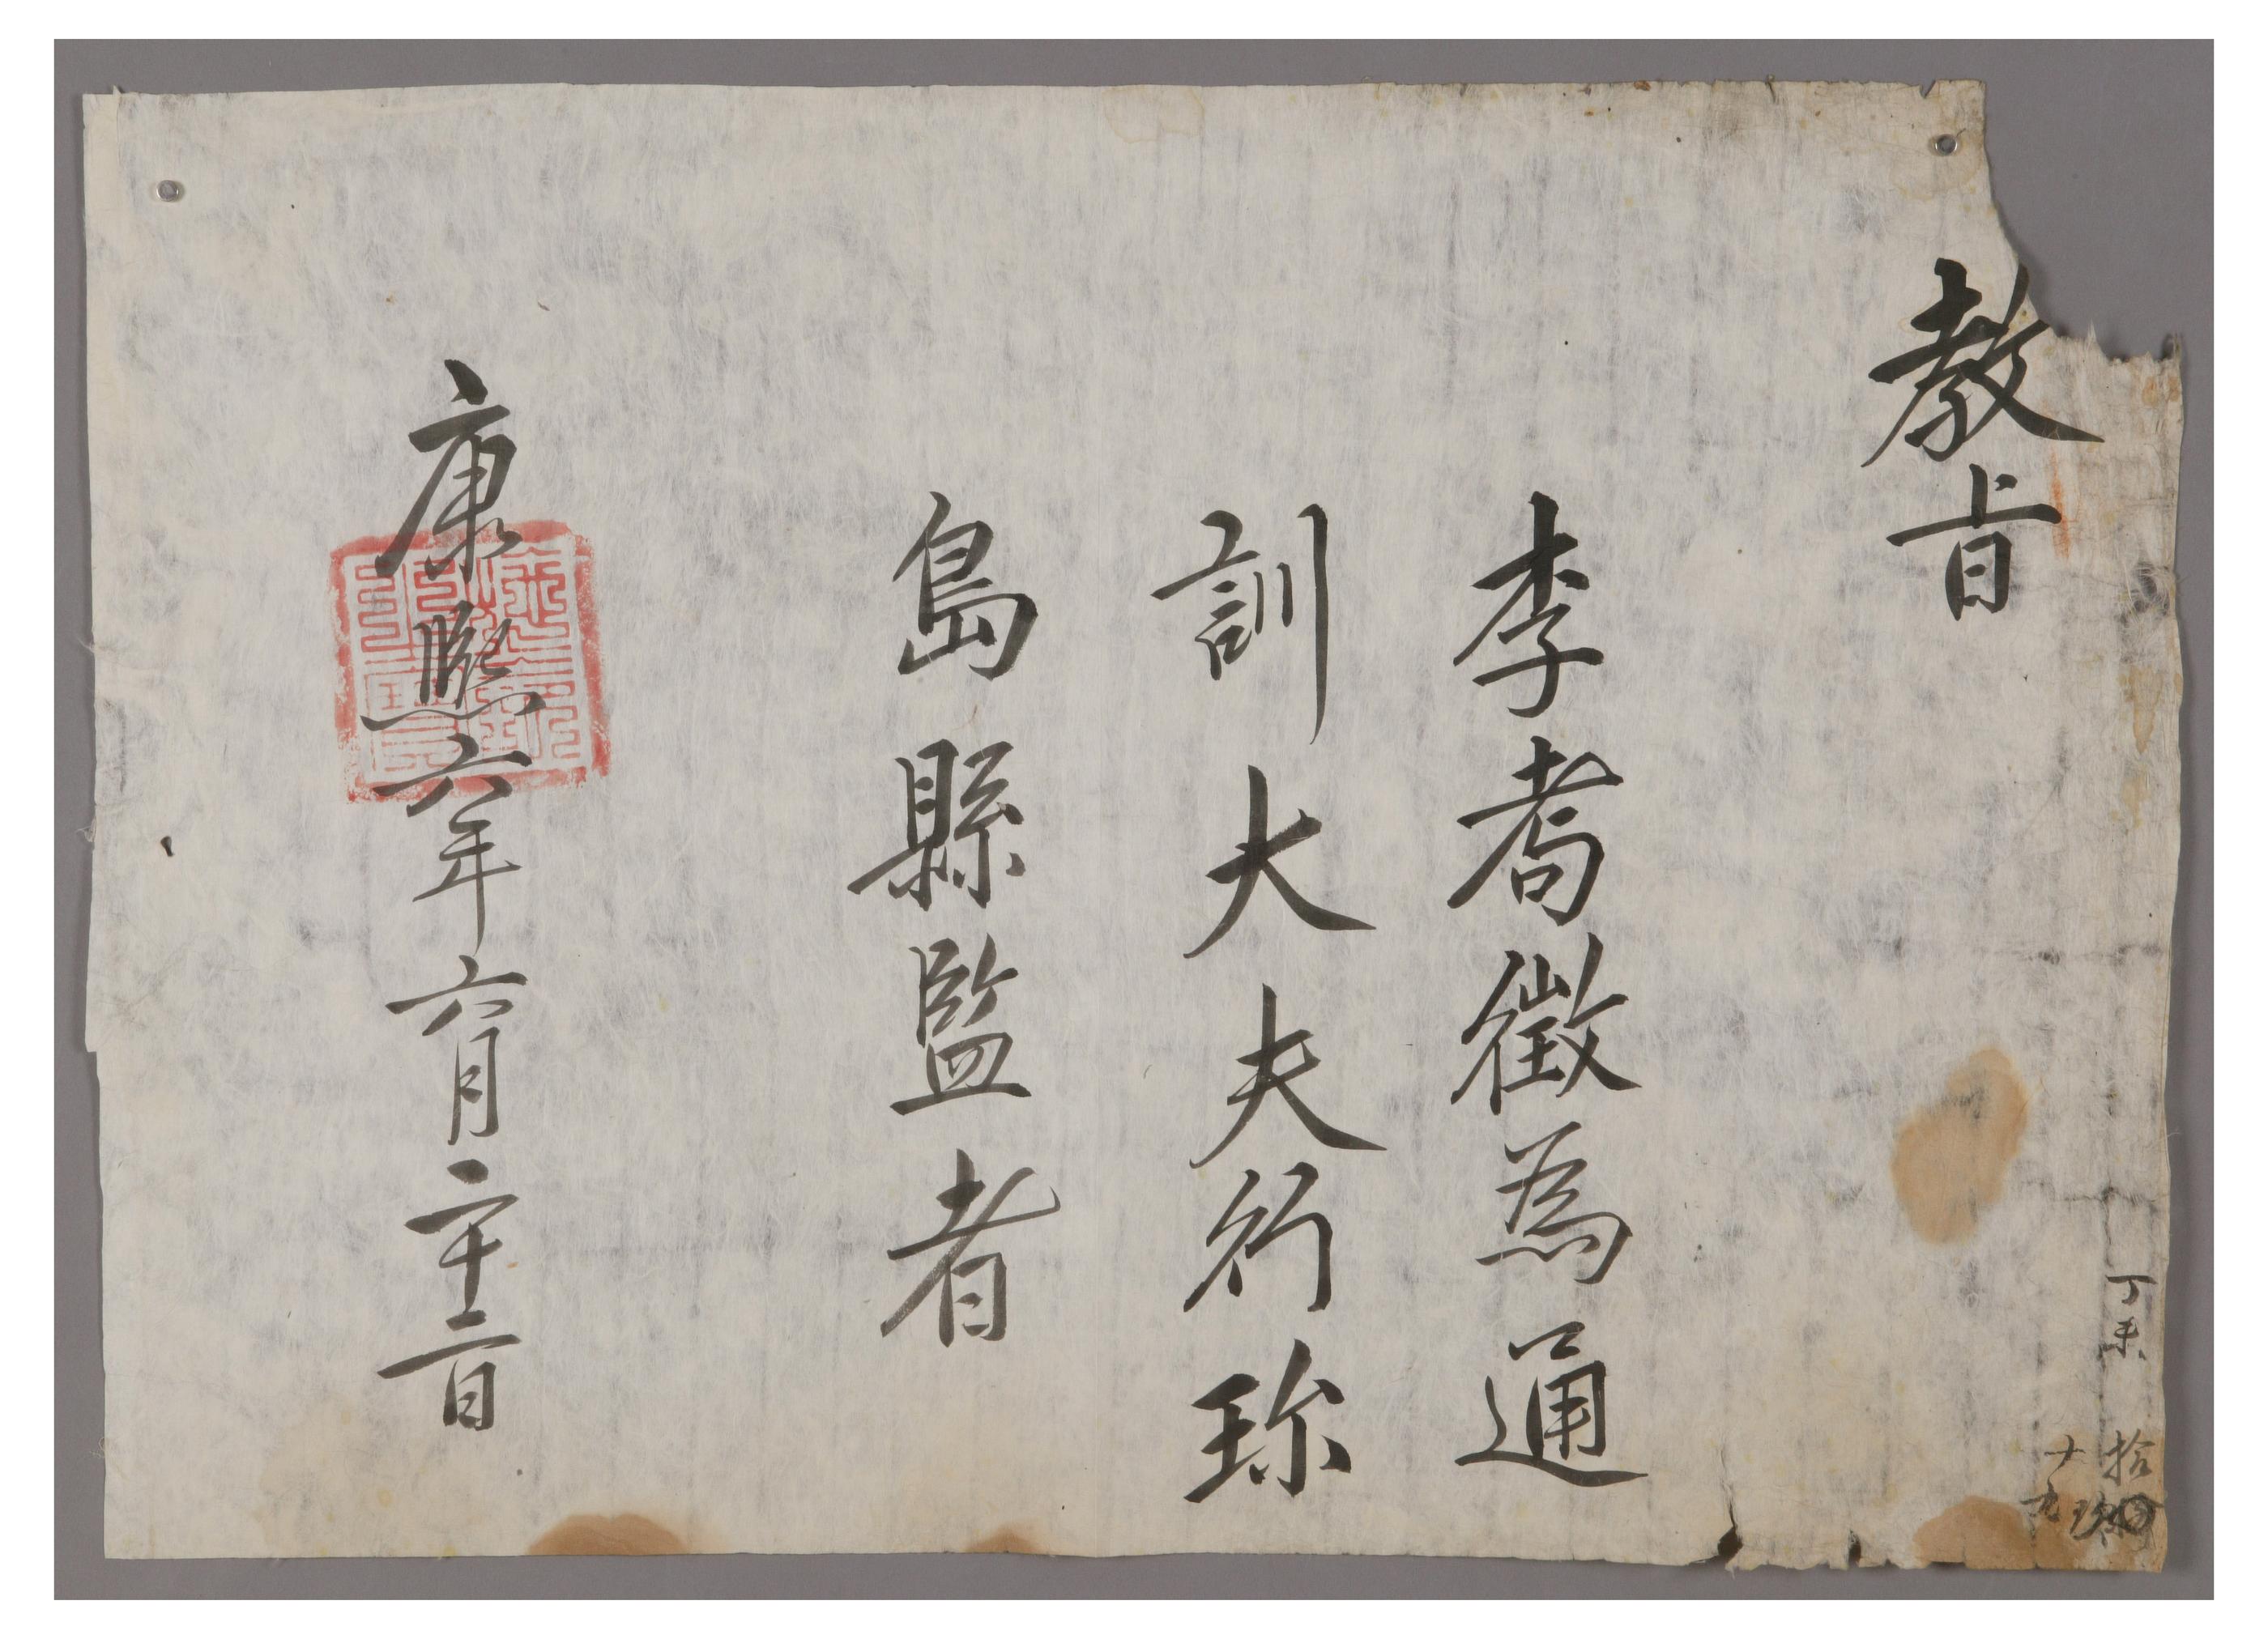 教旨
李耉徵為通
訓大夫行珎
島縣監者
康熙六年六月二十二日
丁未 拾
十九